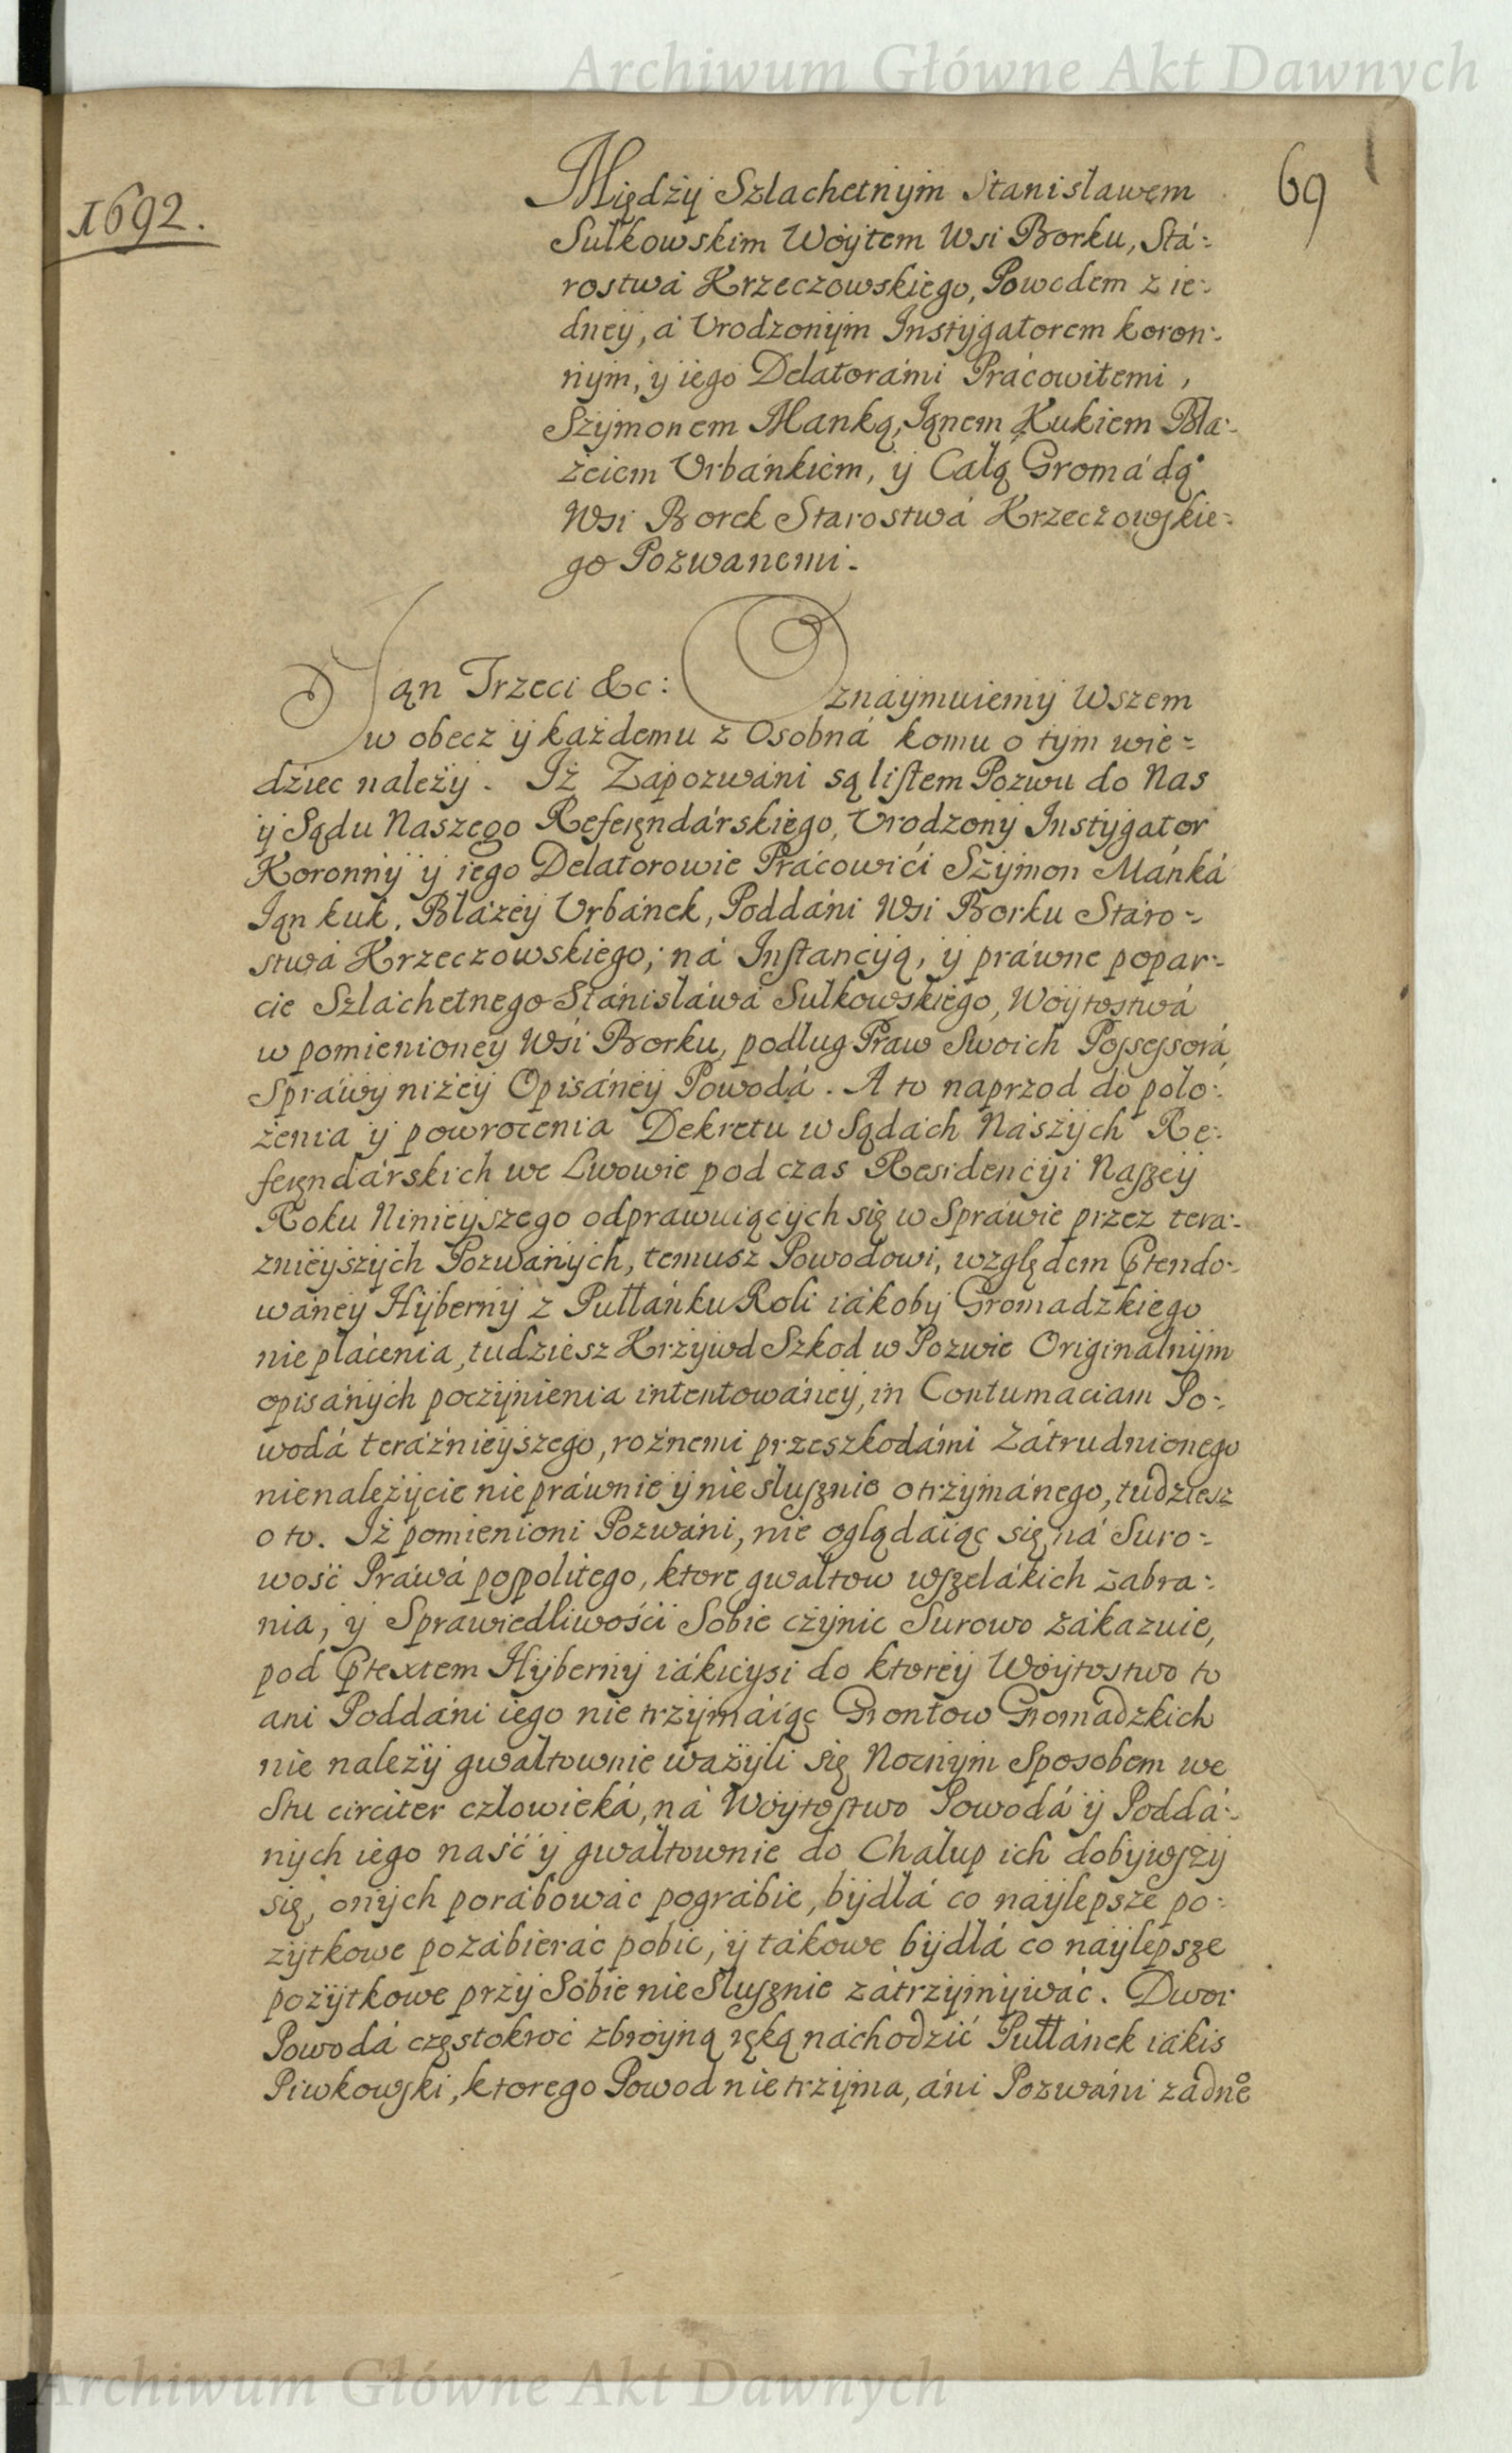 Archiwum Główne Akt Dawnych
1692.
69
Między Szlachetnym Stanisławem
Sułkowskim Woytem Wsi Borku, Stá-
rostwá Krzeczowskiego, Powodem z ie-
dney, á Vrodzonym Instygatorem koron-
nym, y iego Delatorámi Prácowitemi,
Szymonem Manką, Iąnem Kukiem Bła-
żeiem Vrbánkiem, y Całą Gromádą
Wsi Borek Starostwá Krzeczowskie-
go Pozwanemi.
Iąn Trzeci &c: Oznáymuiemy Wszem
w obecz y każdemu z Osobná komu o tym wie-
dźiec należy. Iż Zápozwáni są listem Pozwu do Nas
y Sądu Naszego Referęndárskiego, Vrodzony Instygator
Koronny y iego Delatorowie Prácowići Szymon Mánká
Iąn kuk, Błáżey Vrbánek, Poddáni Wsi Borku Stáro-
stwá Krzeczowskiego; ná Instancyą, y práwne popar-
cie Szláchetnego Stánisłáwá Sułkowskiego, Woytostwá
w pomienioney Wśi Borku, podług Praw Swoich Possessorá
Spráwy niżey Opisáney Powodá. A to naprzod do poło-
żenia y powrocenia Dekretu w Sądách Nászych Re-
feręndárskich we Lwowie pod czas Residencyi Naszey
Roku Ninieyszego odprawuiących się w Spráwie przez tera-
znieyszych Pozwánych, temusz Powodowi, względem Ptendo-
wáney Hyberny z Pułłánku Roli iákoby Gromadzkiego
nie płácenia, tudziesz Krzywd Szkod w Pozwie Originálnym
opisánych poczynienia intentowáney, in Contumaciam Po-
wodá teráźnieyszego, rożnemi przeszkodámi Zátrudnionego
nienależycie nie práwnie y nie słusznie otrzymánego, tudziesz
o to. Iż pomienioni Pozwáni, nie oglądáiąc się ná Suro-
wość Práwá pospolitego, ktore gwałtow wszelákich zabra-
nia, y Sprawiedliwości Sobie czynic Surowo zákazuie,
pod Ptextem Hyberny iákieysi do ktorey Woytostwo to
ani Poddáni iego nie trzymáiąc Grontow Gromadzkich
nie należy gwałtownie ważyli się Nocnym Sposobem we
Stu circiter człowieká, ná Woytostwo Powodá y Poddá-
nych iego naść y gwałtownie do Chałup ich dobywszy
się, onych porábowác pográbic, bydłá co naylepsze po-
zytkowe pozábierác pobic, y tákowe bydłá co naylepsze
pożytkowe przy Sobie nie Słusznie zátrzymywác. Dwor
Powodá częstokroć zbroyną ręką náchodzić Pułłánek iákis
Piwkowski, ktorego Powod nie trzyma, áni Pozwáni żadne
Archiwum Główne Akt Dawnych